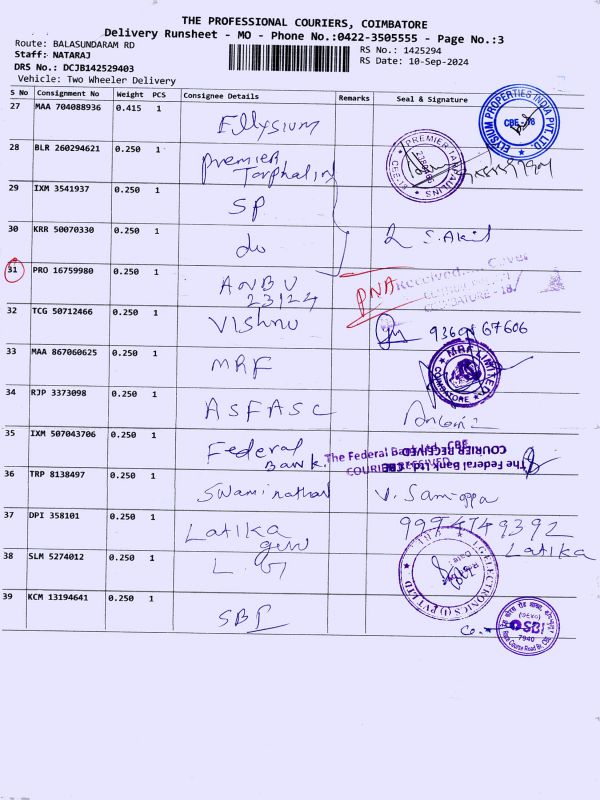 THE PROFESSIONAL COURIERS, COIMBATORE
Delivery Runsheet - MO - Phone No.:0422-3505555 - Page No.:3
Route: BALASUNDARAM RD
Staff: NATARAJ
DRS No.: DCJB142529403
Vehicle: Two Wheeler Delivery
RS No.: 1425294
RS Date: 10-Sep-2024
S No Consignment No Weight PCS Consignee Details Remarks Seal & Signature
27 MAA 704088936 0.415 1 Ellysium
ELYSIUM PROPERTIES INDIA PVT. LTD CBE - 18
28 BLR 260294621 0.250 1 Premier
Tarphalin
PREMIER TARPAULINS
29 IXM 3541937 0.250 1 SP
30 KRR 50070330 0.250 1 do S. Akil
31 PRO 16759980 0.250 1 ANBU
23124
DNA Received
COIMBATORE - 18
32 TCG 50712466 0.250 1 Vishnu
33 MAA 867060625 0.250 1 MRF
MRF LIMITED COIMBATORE
34 RJP 3373098 0.250 1 ASFASC
35 IXM 507043706 0.250 1 Federal
Bank
The Federal Bank Ltd. CBE
COURIER RECEIVED
The Federal Bank Ltd. CBE
COURIER RECEIVED
36 TRP 8138497 0.250 1 Swaminathan
37 DPI 358101 0.250 1 Latika
9994749392
Latika
38 SLM 5274012 0.250 1 L G
39 KCM 13194641 0.250 1 SBI
SBI
7940